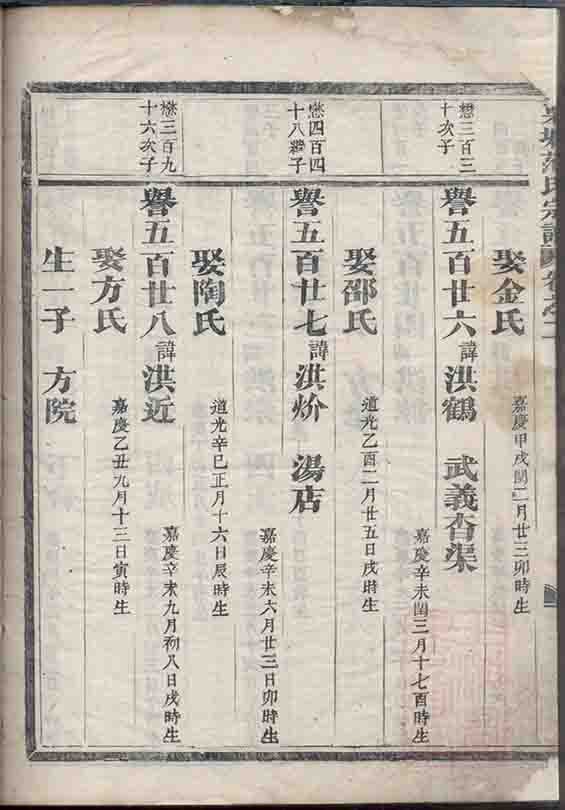 氏宗譜
卷之二
娶金氏
嘉慶甲戌閏二月廿三卯時生
懋三百三
十次子
譽五百廿六諱洪鶴 武義杳渠
嘉慶辛未閏三月十七酉時生
娶邵氏
道光乙酉二月廿五日戌時生
懋四百四
十八繼子
譽五百廿七諱洪炌 湯店
嘉慶辛未六月廿三日卯時生
娶陶氏
道光辛巳正月十六日辰時生
懋三百九
十六次子
譽五百廿八諱洪近
嘉慶辛未九月初八日戌時生
娶方氏
嘉慶乙丑九月十三日寅時生
生一子 方院